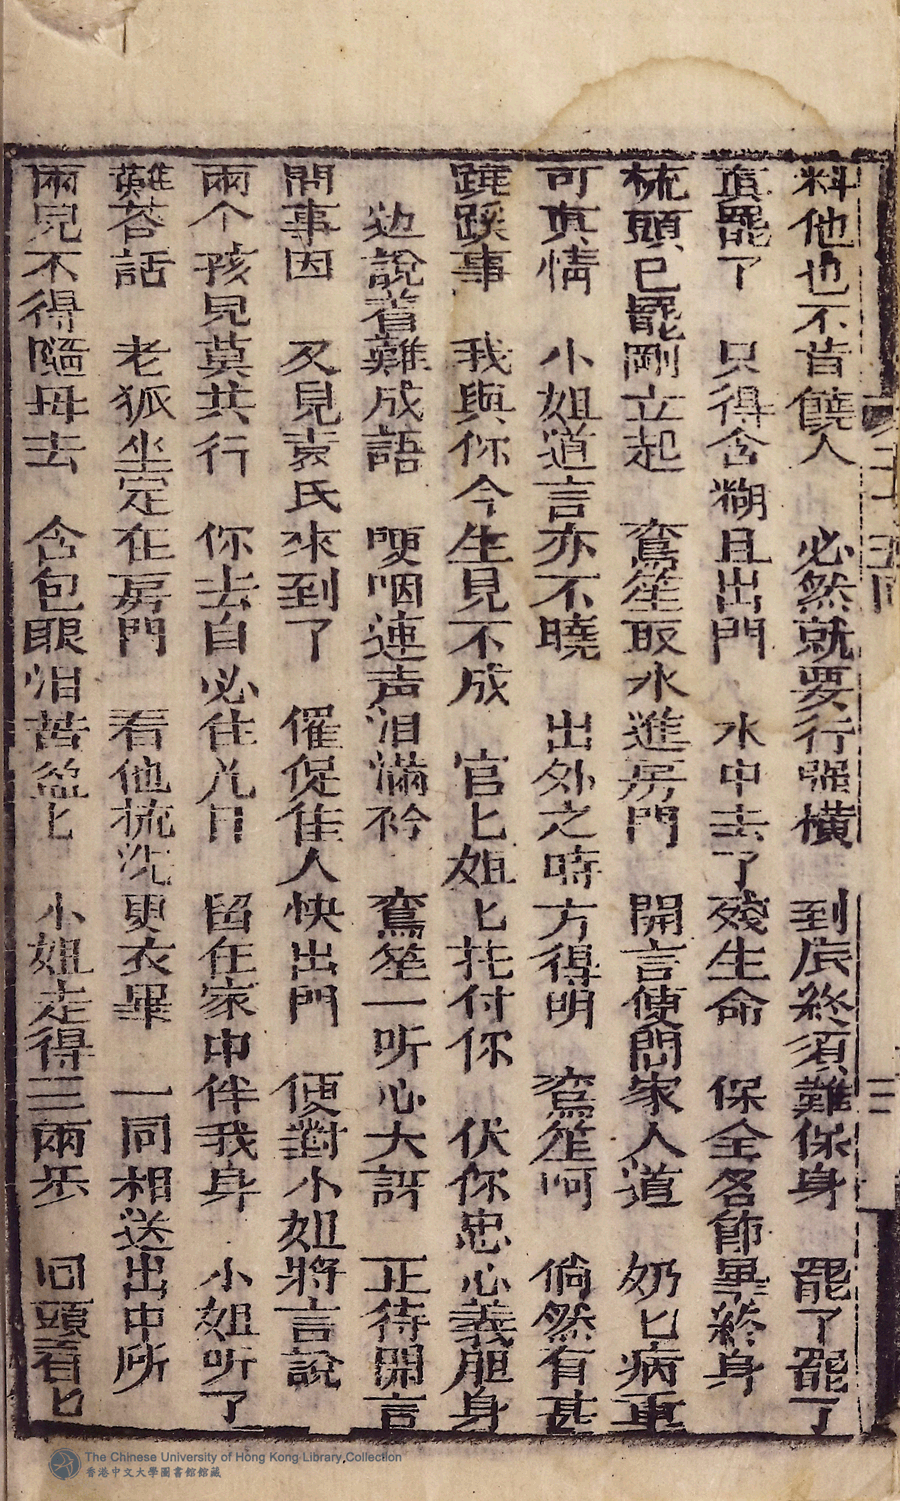 料他也不昔饒人　必然就要行强橫　到底終須難保身　罷了罷了
真罷了　只得含糊且出門　水中去了殘生命　保全名節畢終身
梳頭已罷剛立起　鸞笙取水進房門　開言使問家人道　奶匕病重
可真情　小姐道言亦不曉　出外之時方得明　鸞笙呵　倘然有甚
蹺蹊事　我與你今生見不成　官匕姐匕托付你　伏你忠心義胆身
边說着難成語　哽咽連声泪滿衿　鸞笙一听心大訝　正待開言
問事因　又見袁氏來到了　催促佳人快出門　便對小姐將言說
兩个孩兒莫共行　你去自必住九日　留在家中伴我身　小姐听了
難荅話　老狐坐定在房門　看他梳洗更衣畢　一同相送出中所
兩兒不得隨母去　含包眼泪苦盈匕　小姐走得三兩步　回頭看匕
二十五回
二
The Chinese University of Hong Kong Library Collection
香港中文大學圖書館館藏